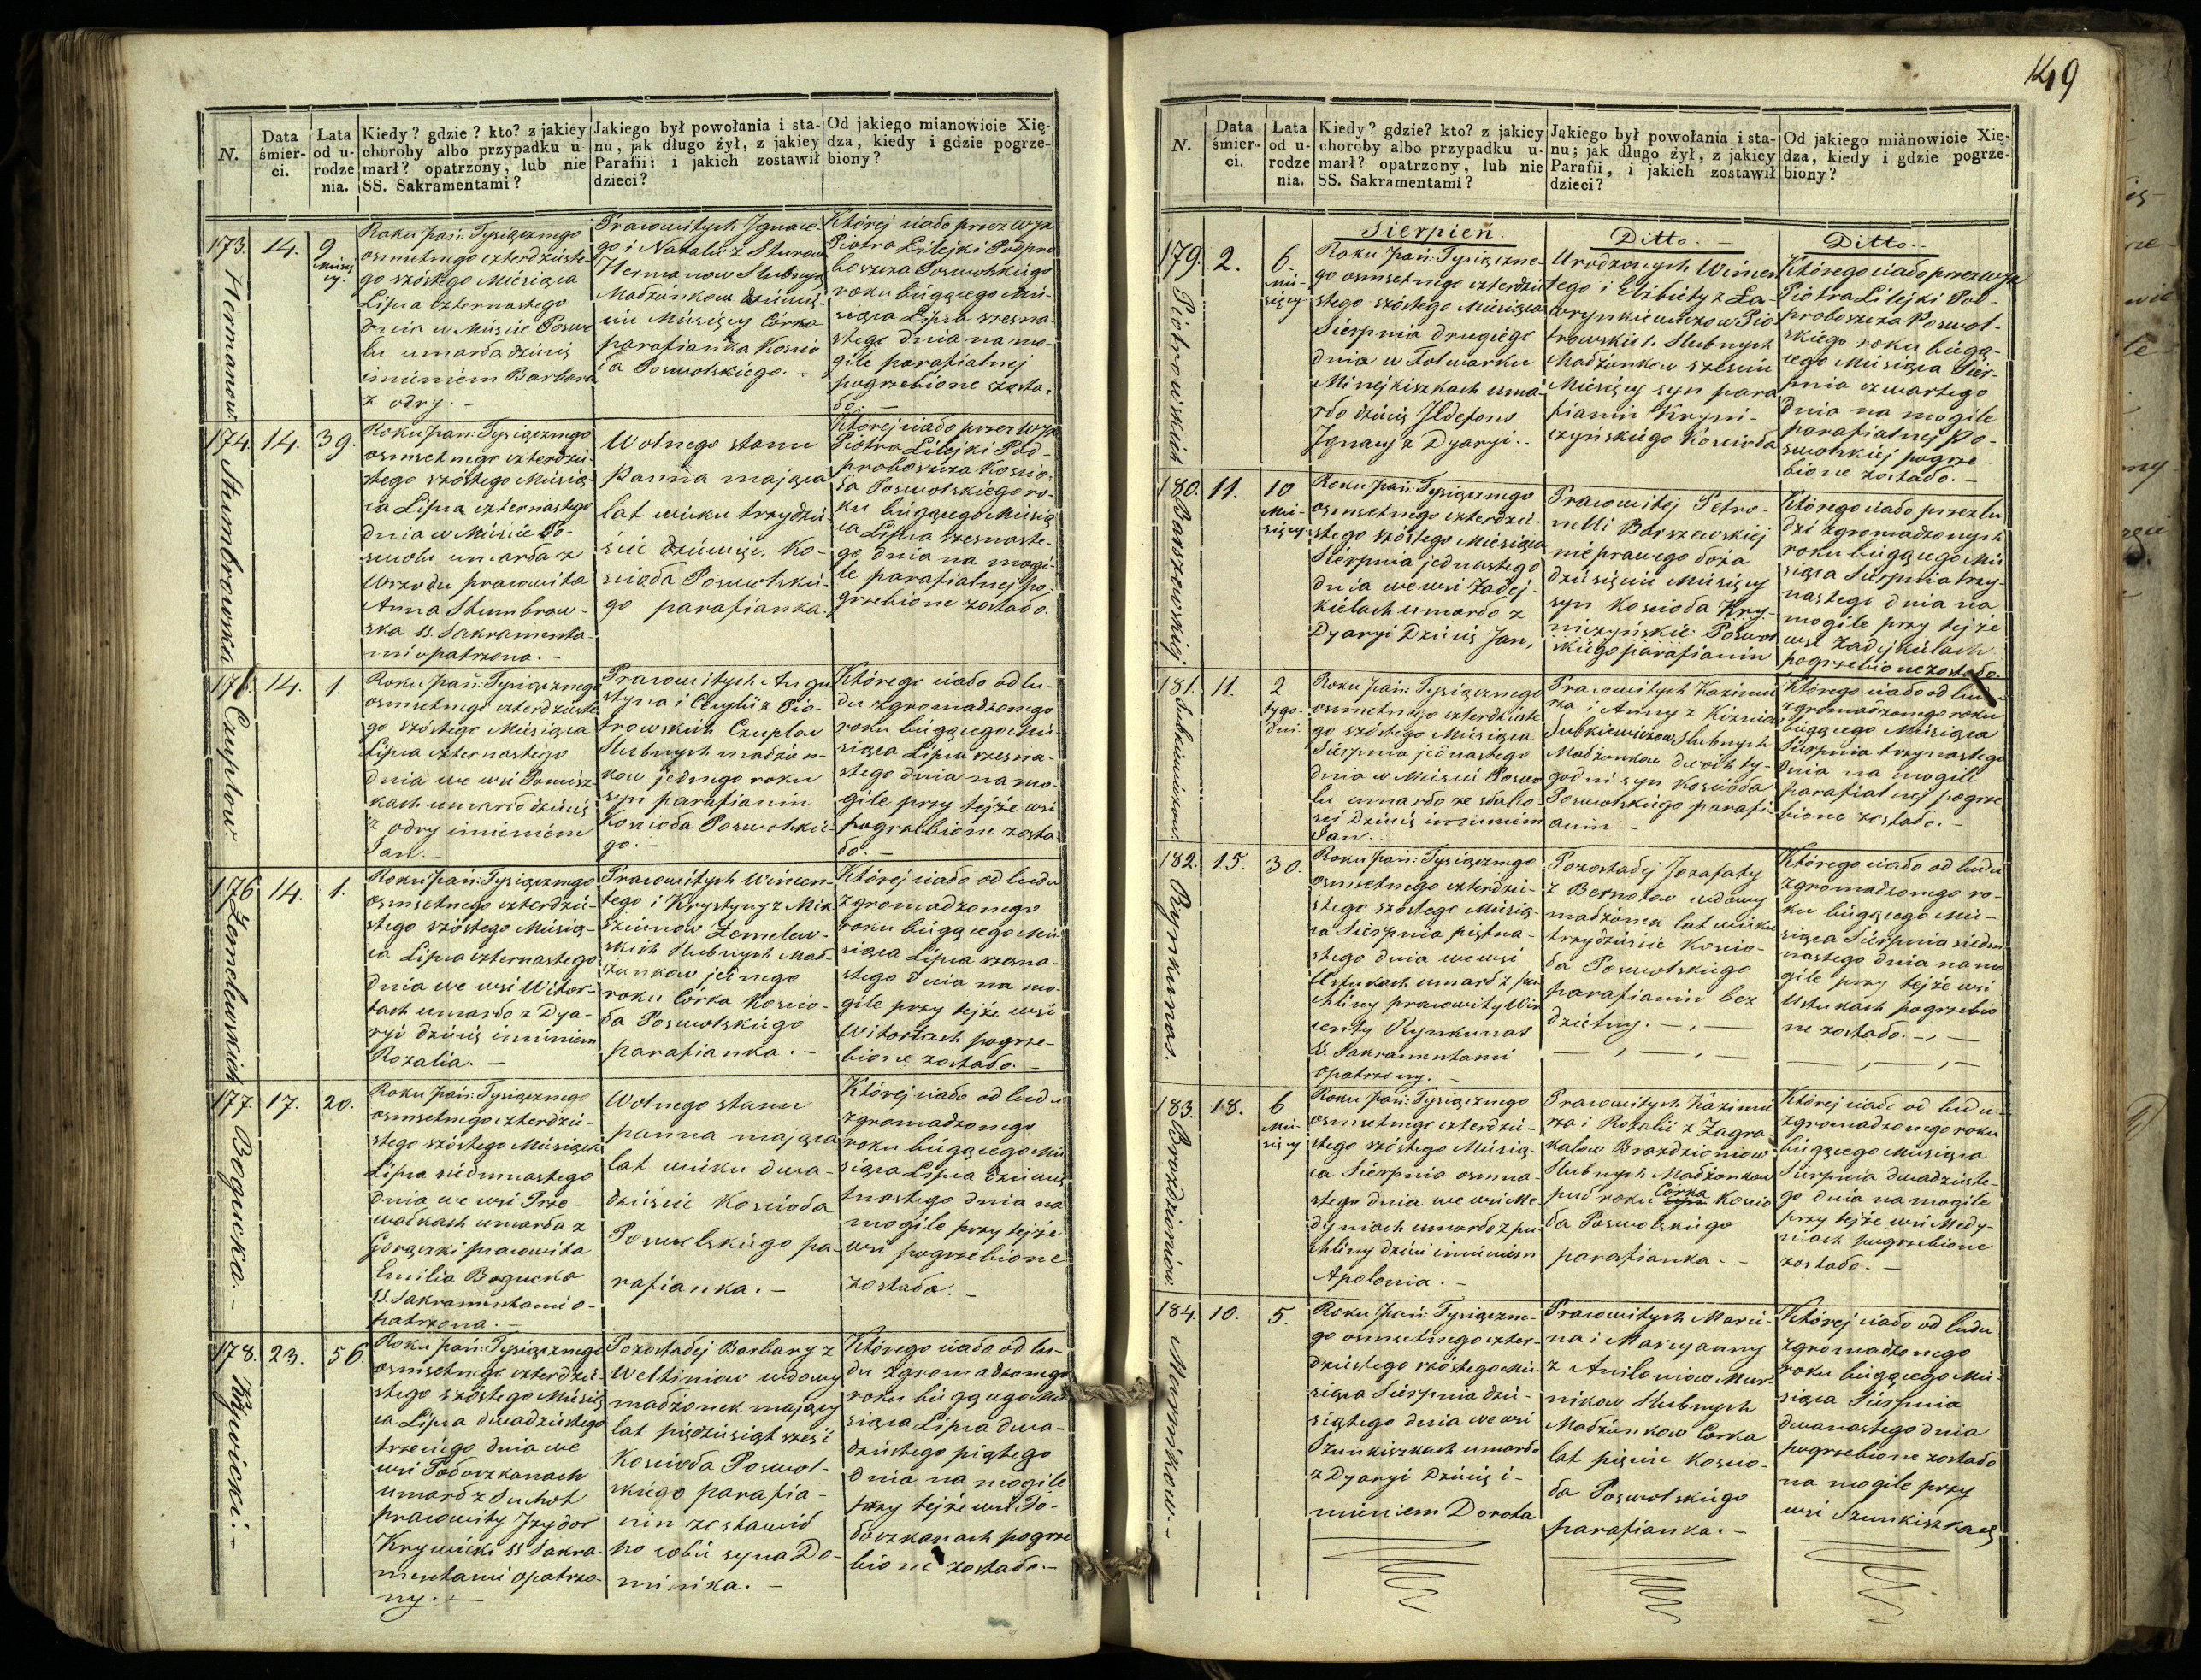 N.
Data
śmier-
ci.
Lata
od u-
rodze
nia.
Kiedy? gdzie? kto? z jakiey
choroby albo przypadku u-
marł? opatrzony, lub nie
SS. Sakramentami?
Jakiego był powołania i sta-
nu, jak długo żył, z jakiey
Parafii: i jakich zostawił
dzieci?
Od jakiego mianowicie Xię-
dza, kiedy i gdzie pogrze-
biony?
173.
Hermanow
14.
9
Miesię
cy.
Roku Pań: Tysiącznego
osmsetnego czterdzieste-
go szóstego Miesiąca
Lipca czternastego
dnia w Mieście Poswo
lu umarła dziecię
imieniem Barbara
z odry. -
Prawowitych Ignace-
go i Natalii z Sturow
Hermanow Slubnych
Madżonkow dziewię-
ciu Miesięcy Córka
parafianka Koscio
ła Poswolskiego. -
Której ciało przez WJX
Piotra Lilejki Podpro
boszcza Poswolskiego
roku biegącego Mie-
siąca Lipca szesna-
stego dnia na mo-
gile parafialnej
pogrzebione zosta-
ło. -
174.
Stumbrowska
14.
39.
Roku Pań: Tysiącznego
osmsetnego czterdzie-
stego szóstego Miesią-
ca Lipca czternastego
dnia w Mieście Po-
swolu umarła z
Wrzodu prawowita
Anna Stumbrow-
ska SS. Sakramenta-
mi opatrzona. -
Wolnego stanu
Panna mająca
lat wieku trzydzie-
ście dziewięć, Ko-
scioła Poswolskie-
go parafianka.
Której ciało przez WJX
Piotra Lilejki Pod-
proboszcza Koscio-
ła Poswolskiego ro-
ku biegącego Miesią
ca Lipca szesnaste-
go dnia na mogi-
le parafialnej po-
grzebione zostało.
175.
Czuplow
14.
1.
Roku Pań: Tysiącznego
osmsetnego czterdzieste
go szóstego Miesiąca
Lipca czternastego
dnia we wsi Pomisz-
kach umarło dziecię
z odry imieniem
Jan. -
Prawowitych Augu
styna i Cecylii z Pio-
trowskich Czuplow
Slubnych madżon-
kow jednego roku
syn parafianin
Koscioła Poswolskie-
go. -
Którego ciało od lu-
du zgromadzonego
roku biegącego Mie
siąca Lipca szesna-
stego dnia na mo-
gile przy tejże wsi
pogrzebione zosta
ło. -
176.
Zemelewskich
14.
1.
Roku Pań: Tysiącznego
osmsetnego czterdzie-
stego szóstego Miesią-
ca Lipca czternastego
dnia we wsi Witor-
tach umarło z Dya-
ryi dziecię imieniem
Rozalia. -
Prawowitych Wincen-
tego i Krystyny z Mik
sziunow Zemelew-
skich Slubnych Mad-
żonkow jednego
roku Córka Koscio-
ła Poswolskiego
parafianka. -
Której ciało od ludu
zgromadzonego
roku biegącego Mie
siąca Lipca szesna-
stego dnia na mo-
gile przy tejże wsi
Witortach pogrze-
bione zostało. -
177.
Bogucka. -
17.
20.
Roku Pań: Tysiącznego
osmsetnego czterdzie-
stego szóstego Miesiąca
Lipca siedmnastego
dnia we wsi Prze-
walkach umarła z
Gorączki prawowita
Emilia Bogucka
SS. Sakramentami o-
patrzona. -
Wolnego stanu
panna mająca
lat wieku dwa-
dzieście Koscioła
Poswolskiego pa-
rafianka. -
Której ciało od ludu
zgromadzonego
roku biegącego Mie
siąca Lipca dziewię
tnastego dnia na
mogile przy tejże
wsi pogrzebione
została. -
178.
Krywicki. -
23.
56.
Roku Pań: Tysiącznego
osmsetnego czterdzie-
stego szóstego Miesią
ca Lipca dwadziestego
trzeciego dnia we
wsi Podorzkanach
umarł z Suchot
prawowity Jzydor
Krywicki SS Sakra-
mentami opatrzo-
ny. -
Pozostałej Barbary z
Weltiniow wdowy
madżonek mający
lat pięćdziesiąt sześć
Koscioła Poswol-
skiego parafia-
nin zostawił
po sobie syna Do-
minika. -
Którego ciało od lu-
du zgromadzonego
roku biegącego Mie
siąca Lipca dwa-
dziestego piątego
dnia na mogile
przy tejże wsi Po-
dorzkanach pogrze
bione zostało. -
149
N.
Data
śmier-
ci.
Lata
od u-
rodze
nia.
Kiedy? gdzie? kto? z jakiey
choroby albo przypadku u-
marł? opatrzony, lub nie
SS. Sakramentami?
Jakiego był powołania i sta-
nu; jak długo żył, z jakiey
Parafii, i jakich zostawił
dzieci?
Od jakiego mianowicie Xię-
dza, kiedy i gdzie pogrze-
biony?
Sierpień.
Ditto. -
Ditto. -
179.
Piotrowiskich
2.
6.
Mie-
sięcy
Roku Pań: Tysiączne-
go osmsetnego czterdzie
stego szóstego Miesiąca
Sierpnia drugiego
dnia w Folwarku
Minejkiszkach uma-
rło dziecię Jldefons
Jgnacy z Dyaryi. -
Urodzonych Wincen
tego i Elżbiety z Ła-
wrynkiewiczow Pio-
trowskich Slubnych
Madżonkow sześciu
Miesięcy syn para
fianin Kryni-
czyńskiego Koscioła
Którego ciało przez WJX
Piotra Lilejki Pod-
proboszcza Poswol-
skiego roku biegą-
cego Miesiąca Sier-
pnia czwartego
dnia na mogile
parafialnej Po-
swolskiej pogrze
bione zostało. -
180.
Barszewskiej
11.
10
Mie-
sięcy
Roku Pań: Tysiącznego
osmsetnego czterdzie-
stego szóstego Miesiąca
Sierpnia jednastego
dnia we wsi Zadej-
kielach umarło z
Dyaryi Dziecię Jan,
Prawowitej Petro-
nelli Barszewskiej
nieprawego łoża
dziesięciu Miesięcy
syn Koscioła Kry-
niczyńskie: Poswol
skiego parafianin
Którego ciało przez lu
dzi zgromadzonych
roku biegącego Mie
siąca Sierpnia trzy-
nastego dnia na
mogile przy tejże
wsi Zadejkielach
pogrzebione zostało
181.
Sutkiewiczow.
11.
2
tygo-
dni.
Roku Pań: Tysiącznego
osmsetnego czterdzieste
go szóstego Miesiąca
Sierpnia jednastego
dnia w Mieście Poswo
lu umarło ze słabo
sci Dziecię imieniem
Jan. -
Prawowitych Kazimie
rza i Anny z Kizniow
Sutkiewiczow Slubnych
Madżonkow dwóch ty-
godni syn Koscioła
Poswolskiego parafi-
anin. -
Którego ciało od ludu
zgromadzonego roku
biegącego Miesiąca
Sierpnia trzynastego
dnia na mogile
parafialnej pogrze
bione zostało. -
182.
Rynkunas.
15.
30.
Roku Pań: Tysiącznego
osmsetnego czterdzie-
stego szóstego Miesią-
ca Sierpnia piętna-
stego dnia we wsi
Ustukach umarł z pu
chliny prawowity Win
centy Rynkunas
SS. Sakramentami
opatrzony. -
Pozostałej Jozafaty
z Bernotow wdowy
madżonek lat wieku
trzydzieście Koscio-
ła Poswolskiego
parafianin bez
dzietny. -
Którego ciało od ludu
zgromadzonego ro-
ku biegącego Mie-
siąca Sierpnia siedm
nastego dnia na mo
gile przy tejże wsi
Ustukach pogrzebio
ne zostało. -
183.
Brazdzioniów
18.
6
Mie-
sięcy
Roku Pań: Tysiącznego
osmsetnego czterdzie-
stego szóstego Miesią-
ca Sierpnia osmna-
stego dnia we wsi Me
dyniach umarło z pu
chliny dzieci imieniem
Apolonia. -
Prawowitych Kazimie
rza i Rozalii z Zagra
kalow Brazdzioniow
Slubnych Madżonkow
puł roku syn Córka Koscio
ła Poswolskiego
parafianka. -
Której ciało od ludu
zgromadzonego roku
biegącego Miesiąca
Sierpnia dwadzieste-
go dnia na mogile
przy tejże wsi Medy-
niach pogrzebione
zostało. -
184.
Murnikow. -
10.
5.
Roku Pań: Tysiączne-
go osmsetnego czter-
dziestego szóstego Mie-
siąca Sierpnia dzie-
siątego dnia we wsi
Szunkiszkach umarło
z Dyaryi Dziecię i-
mieniem Dorota
Prawowitych Marci-
na i Maryanny
z Aniloniow Mur-
nikow Slubnych
Madżonkow Córka
lat pięciu Koscio-
ła Poswolskiego
parafianka. -
Której ciało od ludu
zgromadzonego
roku biegącego Mie-
siąca Sierpnia
dwanastego dnia
pogrzebione zostało
na mogile przy
wsi Szunkiszkach